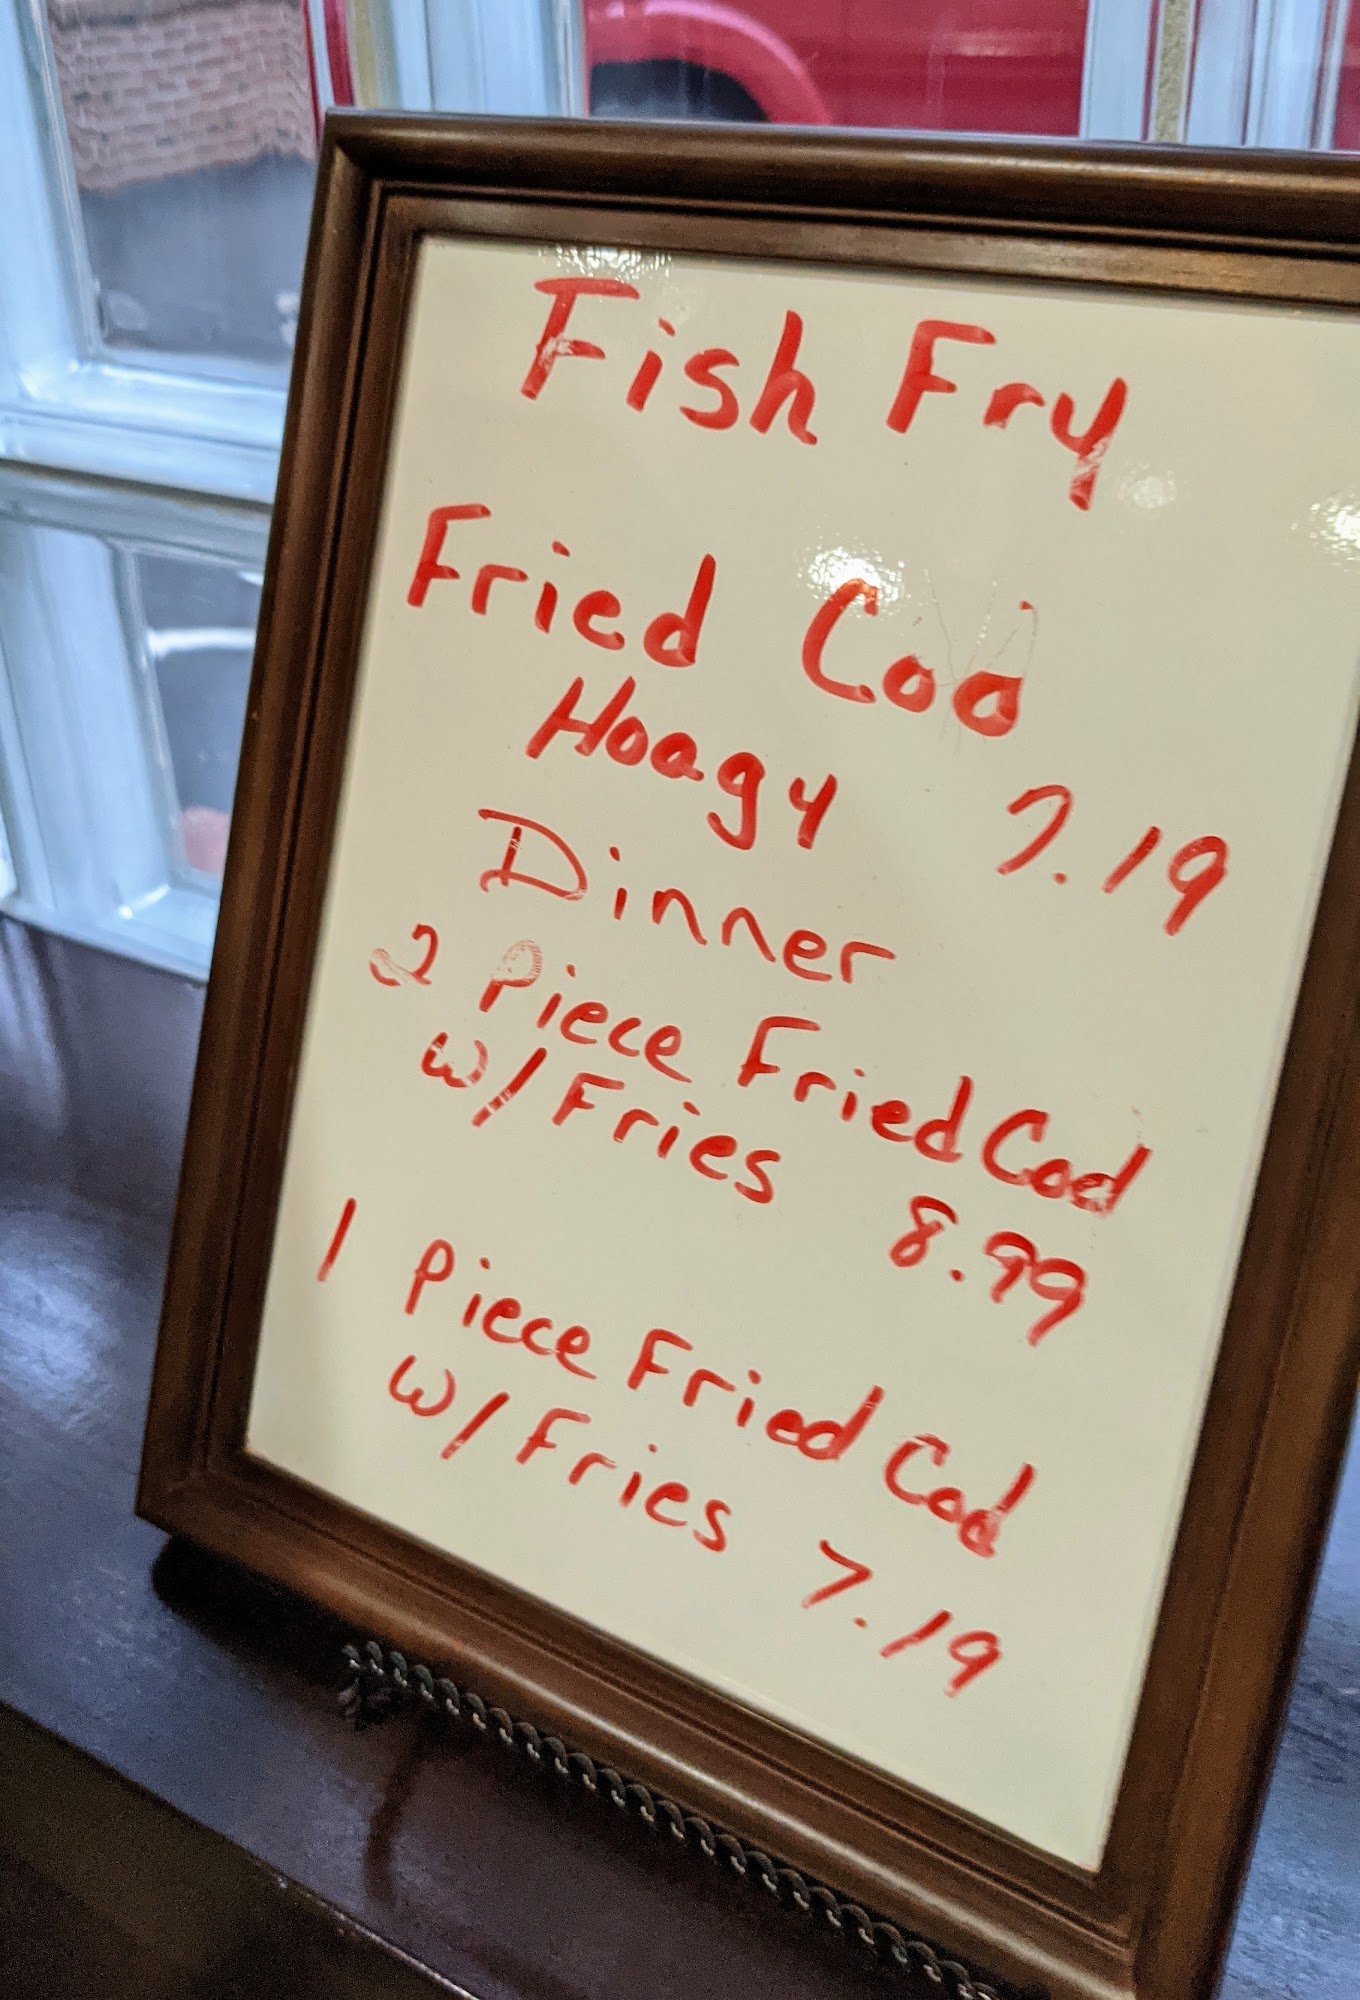 Fish Fry
Fried Cod
Hoagy 7.19
Dinner
2 Piece Fried Cod
w/ Fries 8.99
1 Piece Fried Cod
w/ Fries 7.19